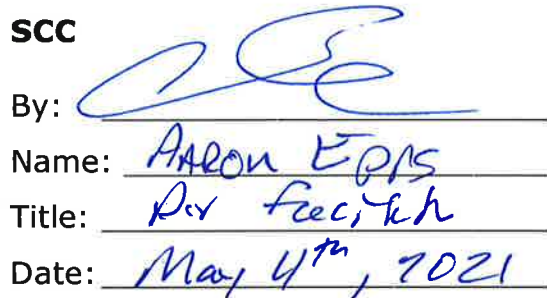 SCC
By:
Name: AARON EPPS
Title: Dir
Date: May 4th, 2021